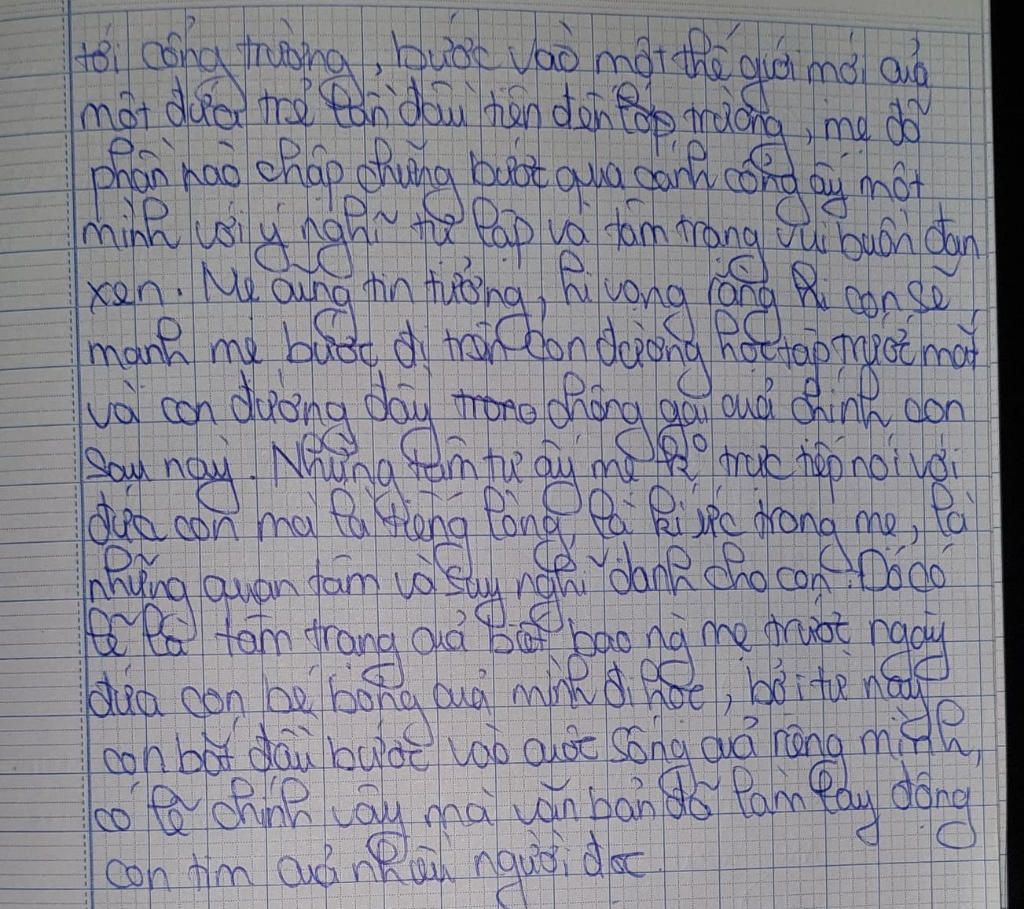 tới cổng trường, bước vào một thế giới mới của
một đứa trẻ lần đầu tiên đến lớp, trường, mẹ đã
phần nào chập chững bước qua cánh cổng ấy một
mình với ý nghĩ tự lập và tâm trạng vui buồn đan
xen. Mẹ cũng tin tưởng, hi vọng rằng khi con sẽ
mạnh mẽ bước đi trên con đường học tập trước mắt
và con đường đầy trong chông gai của chính con
sau này. Những tâm tư ấy mẹ ko trực tiếp nói với
đứa con mà là tiếng lòng, là kí ức trong mẹ, là
những quan tâm và suy nghĩ dành cho con. Đó có
lẽ là tâm trạng của biết bao ng mẹ trước ngày
đứa con bé bỏng của mình đi học, bởi từ nay
con bắt đầu bước vào cuộc sống của riêng mình,
có lẽ chính vậy mà văn bản đã làm lay động
con tim của nhiều người đọc.